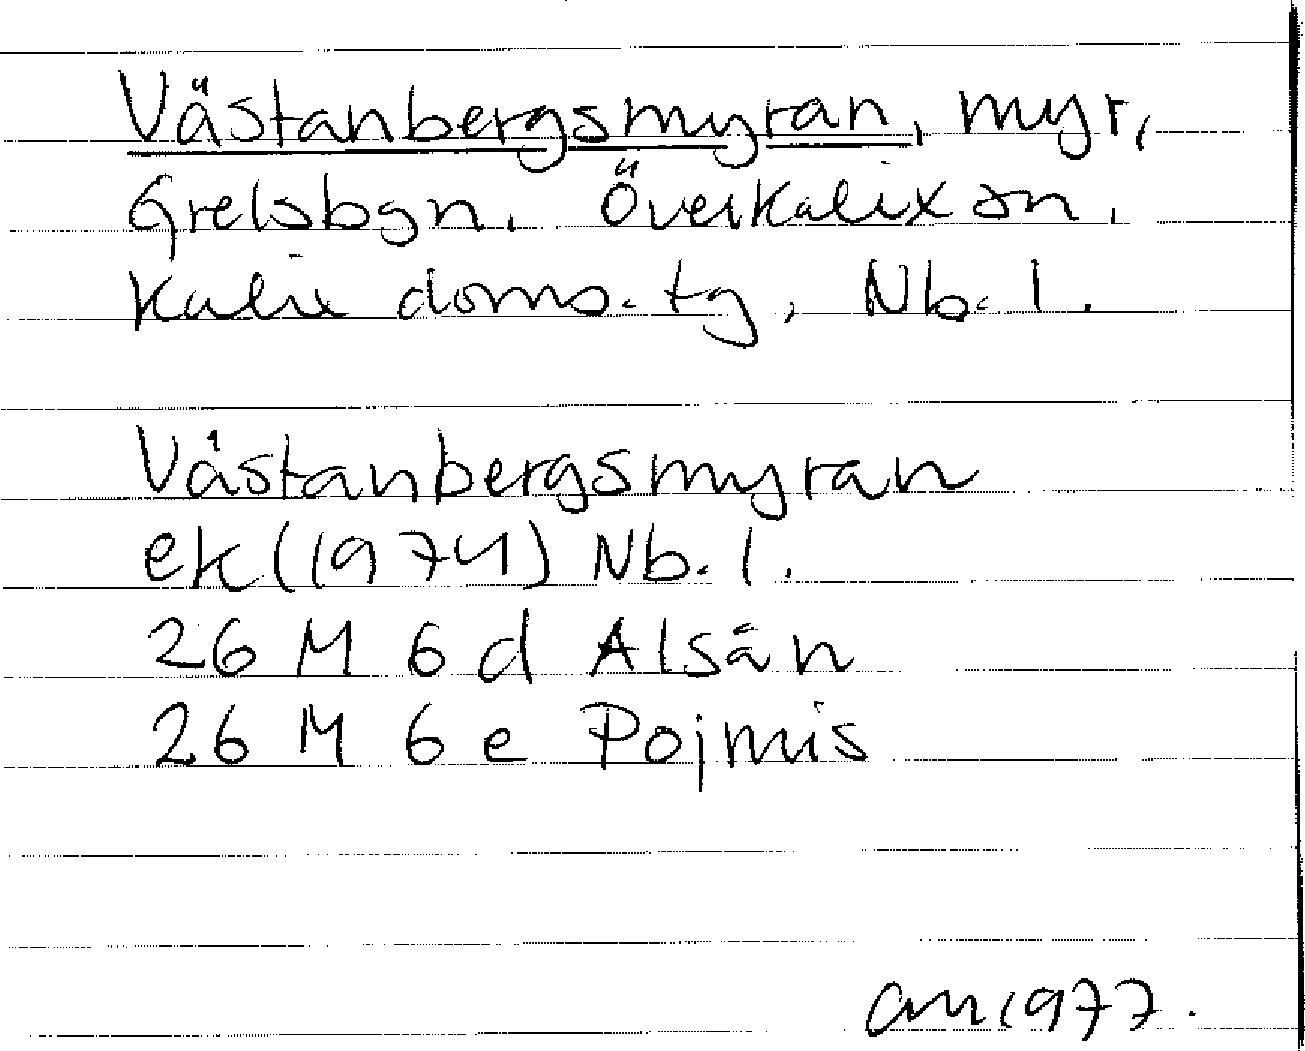 Västanbergsmyran, myr,
Grelsbgn. Överkalix sn.
Kalix doms. tg, Nb. l.
Västanbergsmyran
ek (1974) Nb. l.
26 M 6 d Alsån
26 M 6 e Pojmis
am 1977.